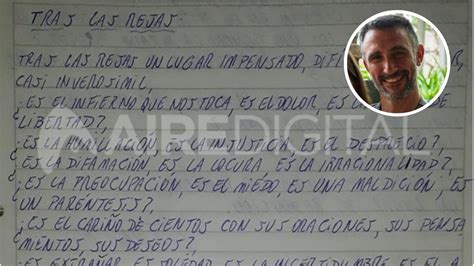 TRAS LAS REJAS
TRAS LAS REJAS UN LUGAR IMPENSADO,
CASI INVEROSIMIL,
¿ES EL INFIERNO QUE NOS TOCA, ES EL DOLOR, ES DE
LIBERTAD?,
¿ES LA HUMILLACIÓN, ES LA INJUSTICIA, ES EL DESPRECIO?,
¿ES LA DIFAMACIÓN, ES LA LOCURA, ES LA IRRACIONALIDAD?,
¿ES LA PREOCUPACIÓN, ES EL MIEDO, ES UNA MALDICIÓN, ES
UN PARENTESIS?,
¿ES EL CARIÑO DE CIENTOS CON SUS ORACIONES, SUS PENSA
MIENTOS, SUS DESEOS?,
AIREDIGITAL